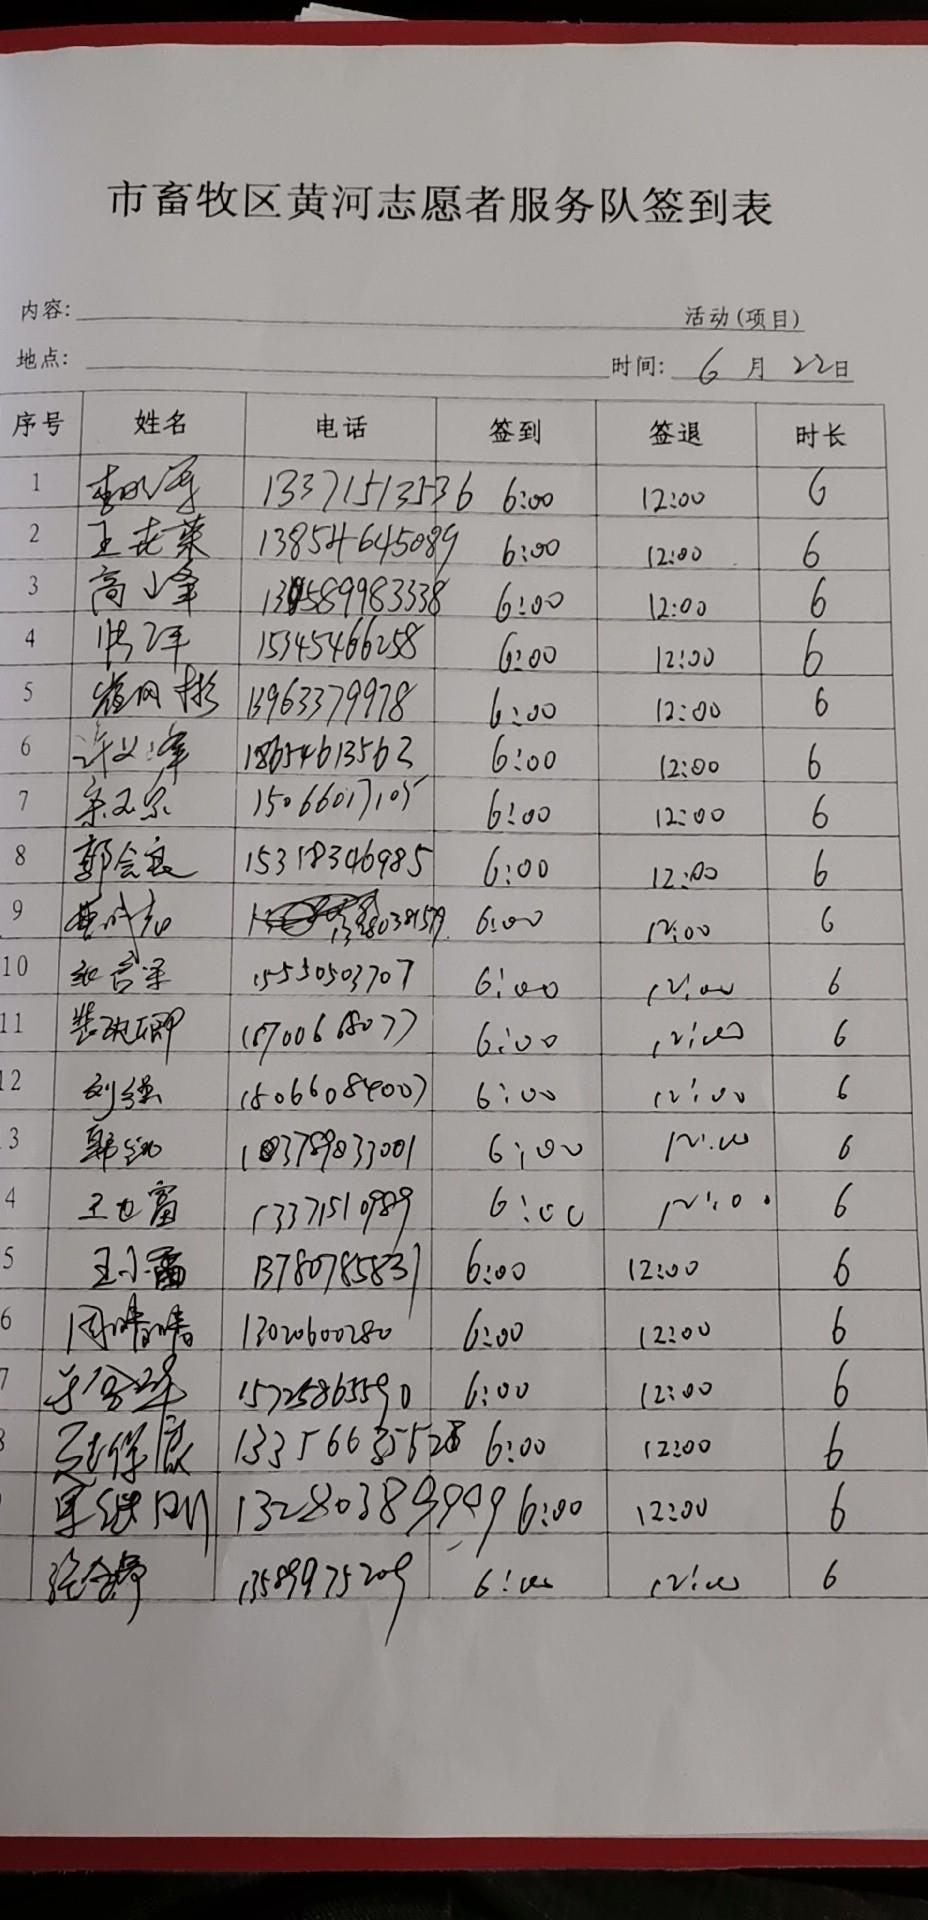 市畜牧区黄河志愿者服务队签到表
内容: 活动(项目)
地点: 时间: 6 月 22 日
序号 姓名 电话 签到 签退 时长
1 13371513536 6:00 12:00 6
2 13854645089 6:00 12:00 6
3 高小峰 13589983338 6:00 12:00 6
4 15345466258 6:00 12:00 6
5 13963379978 6:00 12:00 6
6 18654613562 6:00 12:00 6
7 15066017105 6:00 12:00 6
8 郭会良 15318346985 6:00 12:00 6
9 6:00 12:00 6
10 15550503707 6:00 12:00 6
11 6:00 12:00 6
2 刘强 15066084007 6:00 12:00 6
3 6:00 12:00 6
4 王世富 13371510989 6:00 12:00 6
5 王小雷 13780785831 6:00 12:00 6
6 周晴晴 13020600280 6:00 12:00 6
7 15725865590 6:00 12:00 6
赵保康 6:00 12:00 6
13280389999 6:00 12:00 6
13589975209 6:00 12:00 6